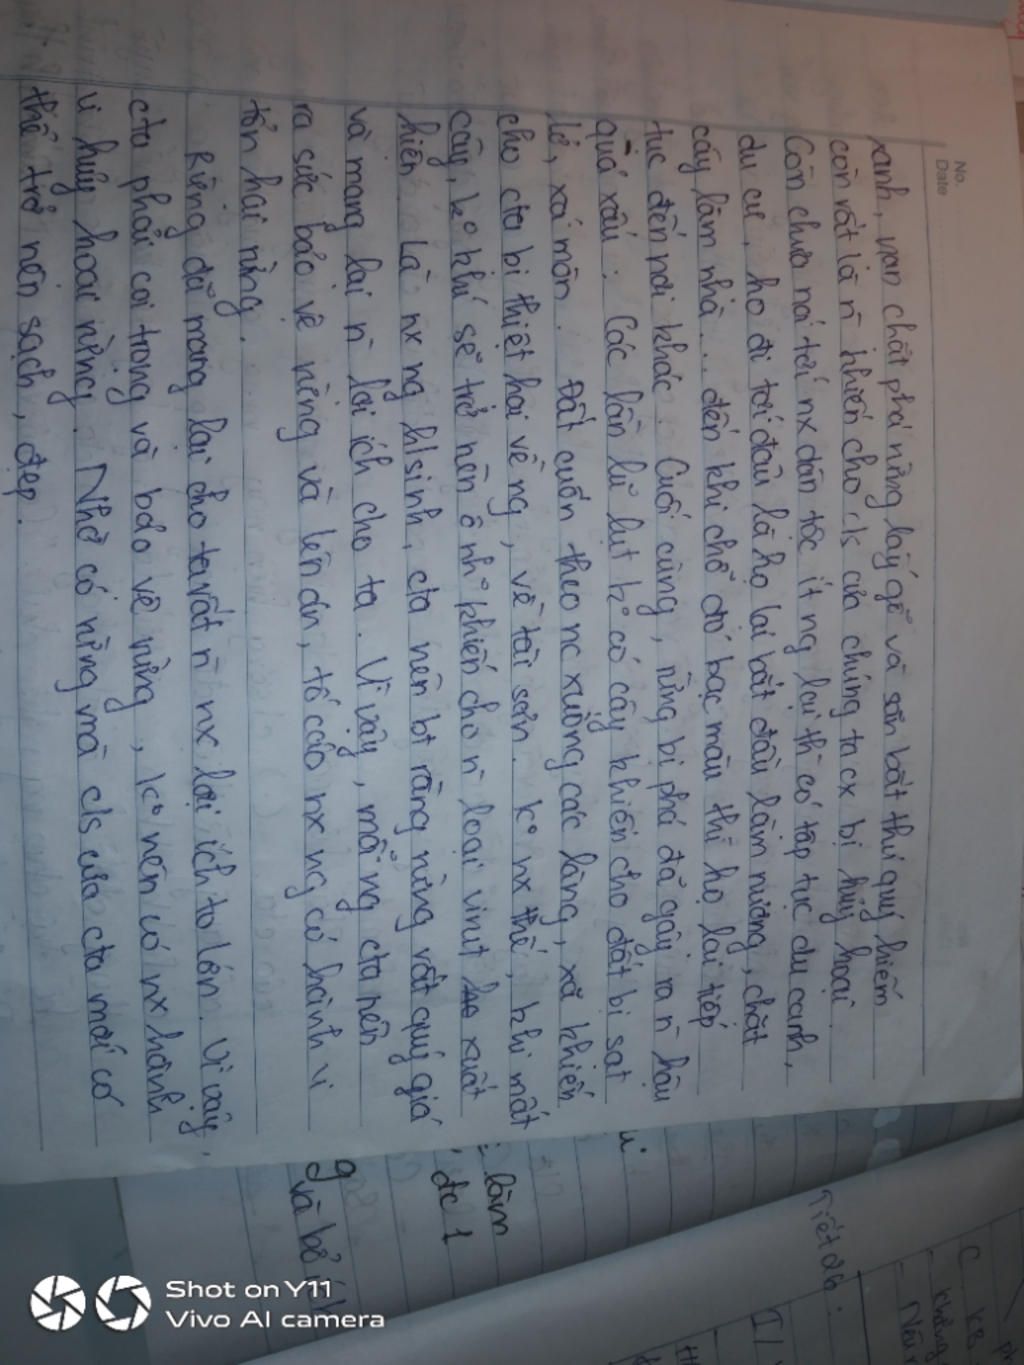 No.
Date
xanh, nạn chặt phá rừng lấy gỗ và săn bắt thú quý hiếm
còn rất là n̄ khiến cho c/s của chúng ta cx bị hủy hoại.
Còn chưa nói tới nx dân tộc ít ng lại thì có tập tục du canh,
du cư, họ đi tới đâu là họ lại bắt đầu làm nương, chặt
cây làm nhà... đến khi chỗ đó bạc màu thì họ lại tiếp
tục đến nơi khác. Cuối cùng, rừng bị phá đã gây ra n̄ hậu
quả xấu: Các lần lũ lụt k° có cây khiến cho đất bị sạt
lở, xói mòn. Đất cuốn theo nc xuống các làng, xã khiến
cho cta bị thiệt hại về ng, về tài sản. k° nx thế, khi mất
cây, k° khí sẽ trở nên ô nh° khiến cho n̄ loại virut xuất
hiện. Là nx ng h/sinh, cta nên bt rằng rừng rất quý giá
và mang lại n̄ lợi ích cho ta. Vì vậy, mỗi ng cta nên
ra sức bảo vệ rừng và lên án, tố cáo nx ng có hành vi
tổn hại rừng.
Rừng đã mang lại cho ta rất n̄ nx lợi ích to lớn. Vì vậy,
cta phải coi trọng và bảo vệ rừng, k° nên có nx hành
vi hủy hoại rừng. Nhờ có rừng mà c/s của cta mới có
thể trở nên sạch, đẹp.
làm
, đc 1
g
và bổ
Tiết 26:
I/
C
KB
không
Shot on Y11
Vivo AI camera